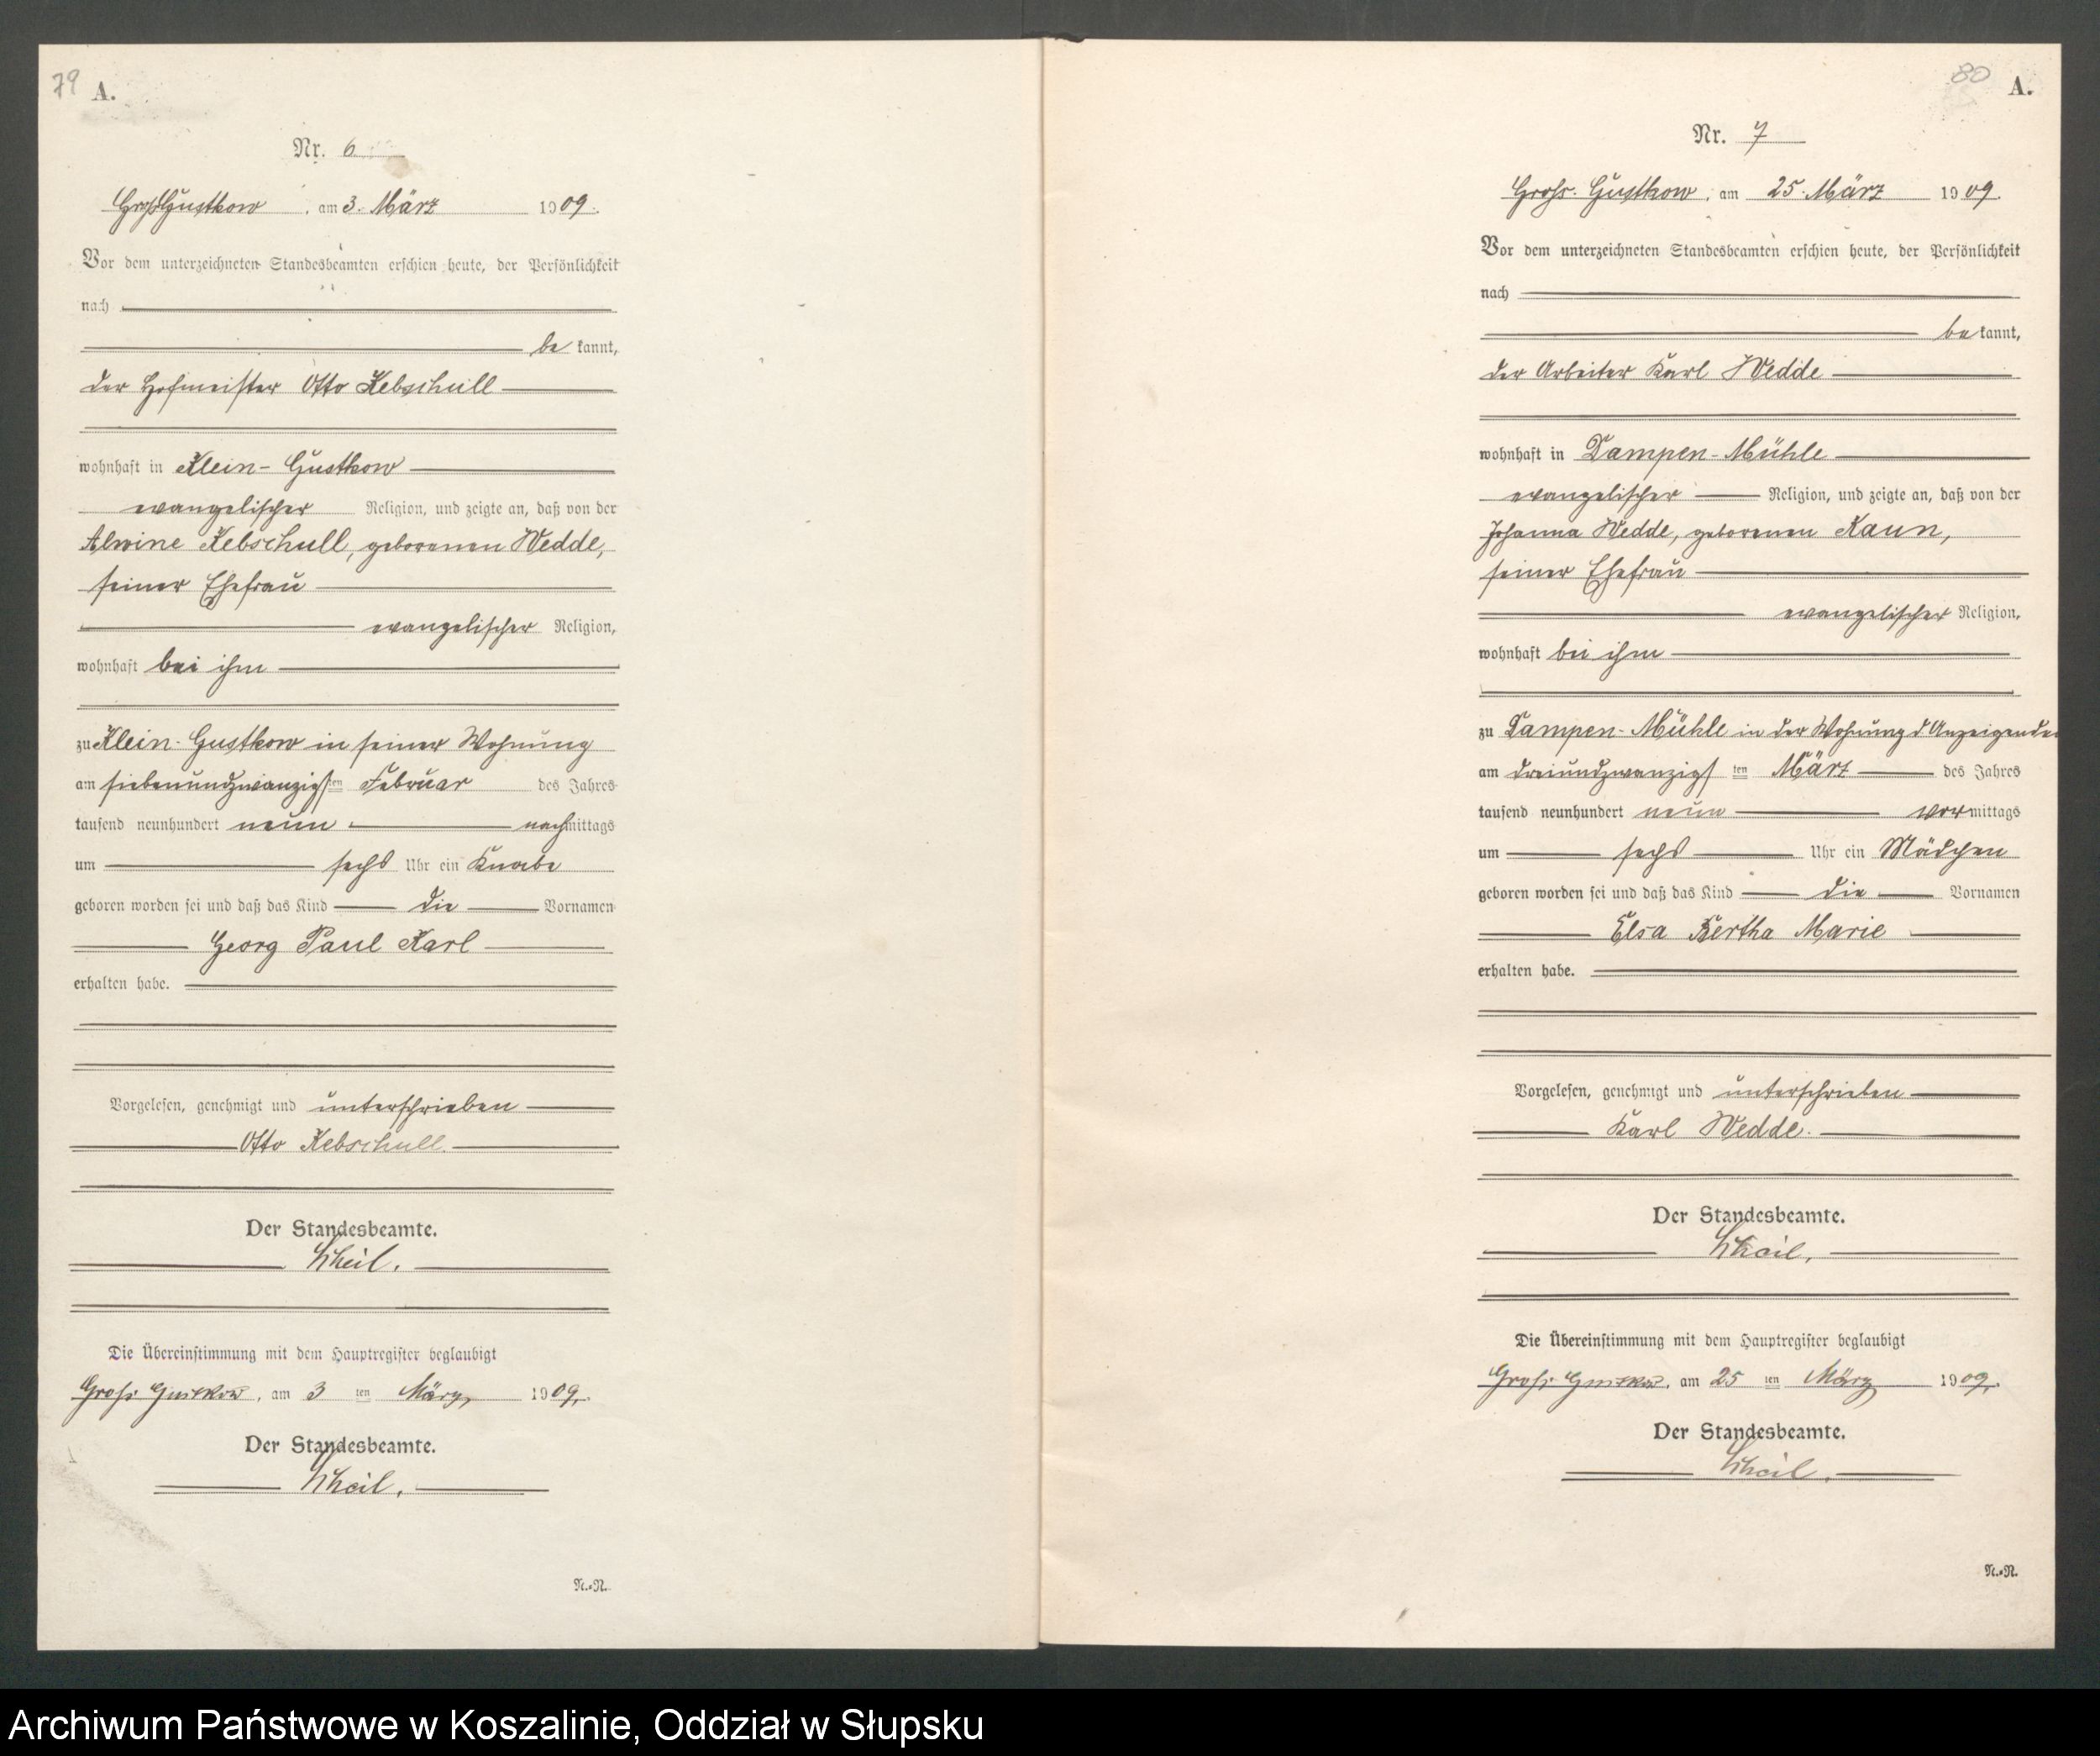 79 A.
Nr. 6
Groß Gustkow, am 3. März 1909.
Vor dem unterzeichneten Standesbeamten erschien heute, der Persönlichkeit
nach
be kannt,
der Hofmeister Otto Kebschull
wohnhaft in Klein-Gustkow
evangelischer Religion, und zeigte an, daß von der
Alwine Kebschull, geborenen Wedde,
seiner Ehefrau
evangelischer Religion,
wohnhaft bei ihm
zu Klein-Gustkow in seiner Wohnung
am siebenundzwanzigsten Februar des Jahres
tausend neunhundert neun nachmittags
um sechs Uhr ein Knabe
geboren worden sei und daß das Kind die Vornamen
Georg Paul Karl
erhalten habe.
Vorgelesen, genehmigt und unterschrieben
Otto Kebschull.
Der Standesbeamte.
Die Übereinstimmung mit dem Hauptregister beglaubigt
Groß Gustkow, am 3 ten März 1909.
Der Standesbeamte.
N.=N.
80 A.
Nr. 7
Groß-Gustkow, am 25. März 1909.
Vor dem unterzeichneten Standesbeamten erschien heute, der Persönlichkeit
nach
be kannt,
der Arbeiter Karl Wedde
wohnhaft in Dampen-Mühle
evangelischer Religion, und zeigte an, daß von der
Johanna Wedde, geborenen Kaun,
seiner Ehefrau
evangelischer Religion,
wohnhaft bei ihm
zu Dampen-Mühle in der Wohnung d Anzeigenden
am dreiundzwanzigsten März des Jahres
tausend neunhundert neun vormittags
um sechs Uhr ein Mädchen
geboren worden sei und daß das Kind die Vornamen
Elsa Bertha Marie
erhalten habe.
Vorgelesen, genehmigt und unterschrieben
Karl Wedde.
Der Standesbeamte.
Die Übereinstimmung mit dem Hauptregister beglaubigt
Groß Gustkow, am 25 ten März 1909.
Der Standesbeamte.
N.=N.
Archiwum Państwowe w Koszalinie, Oddział w Słupsku